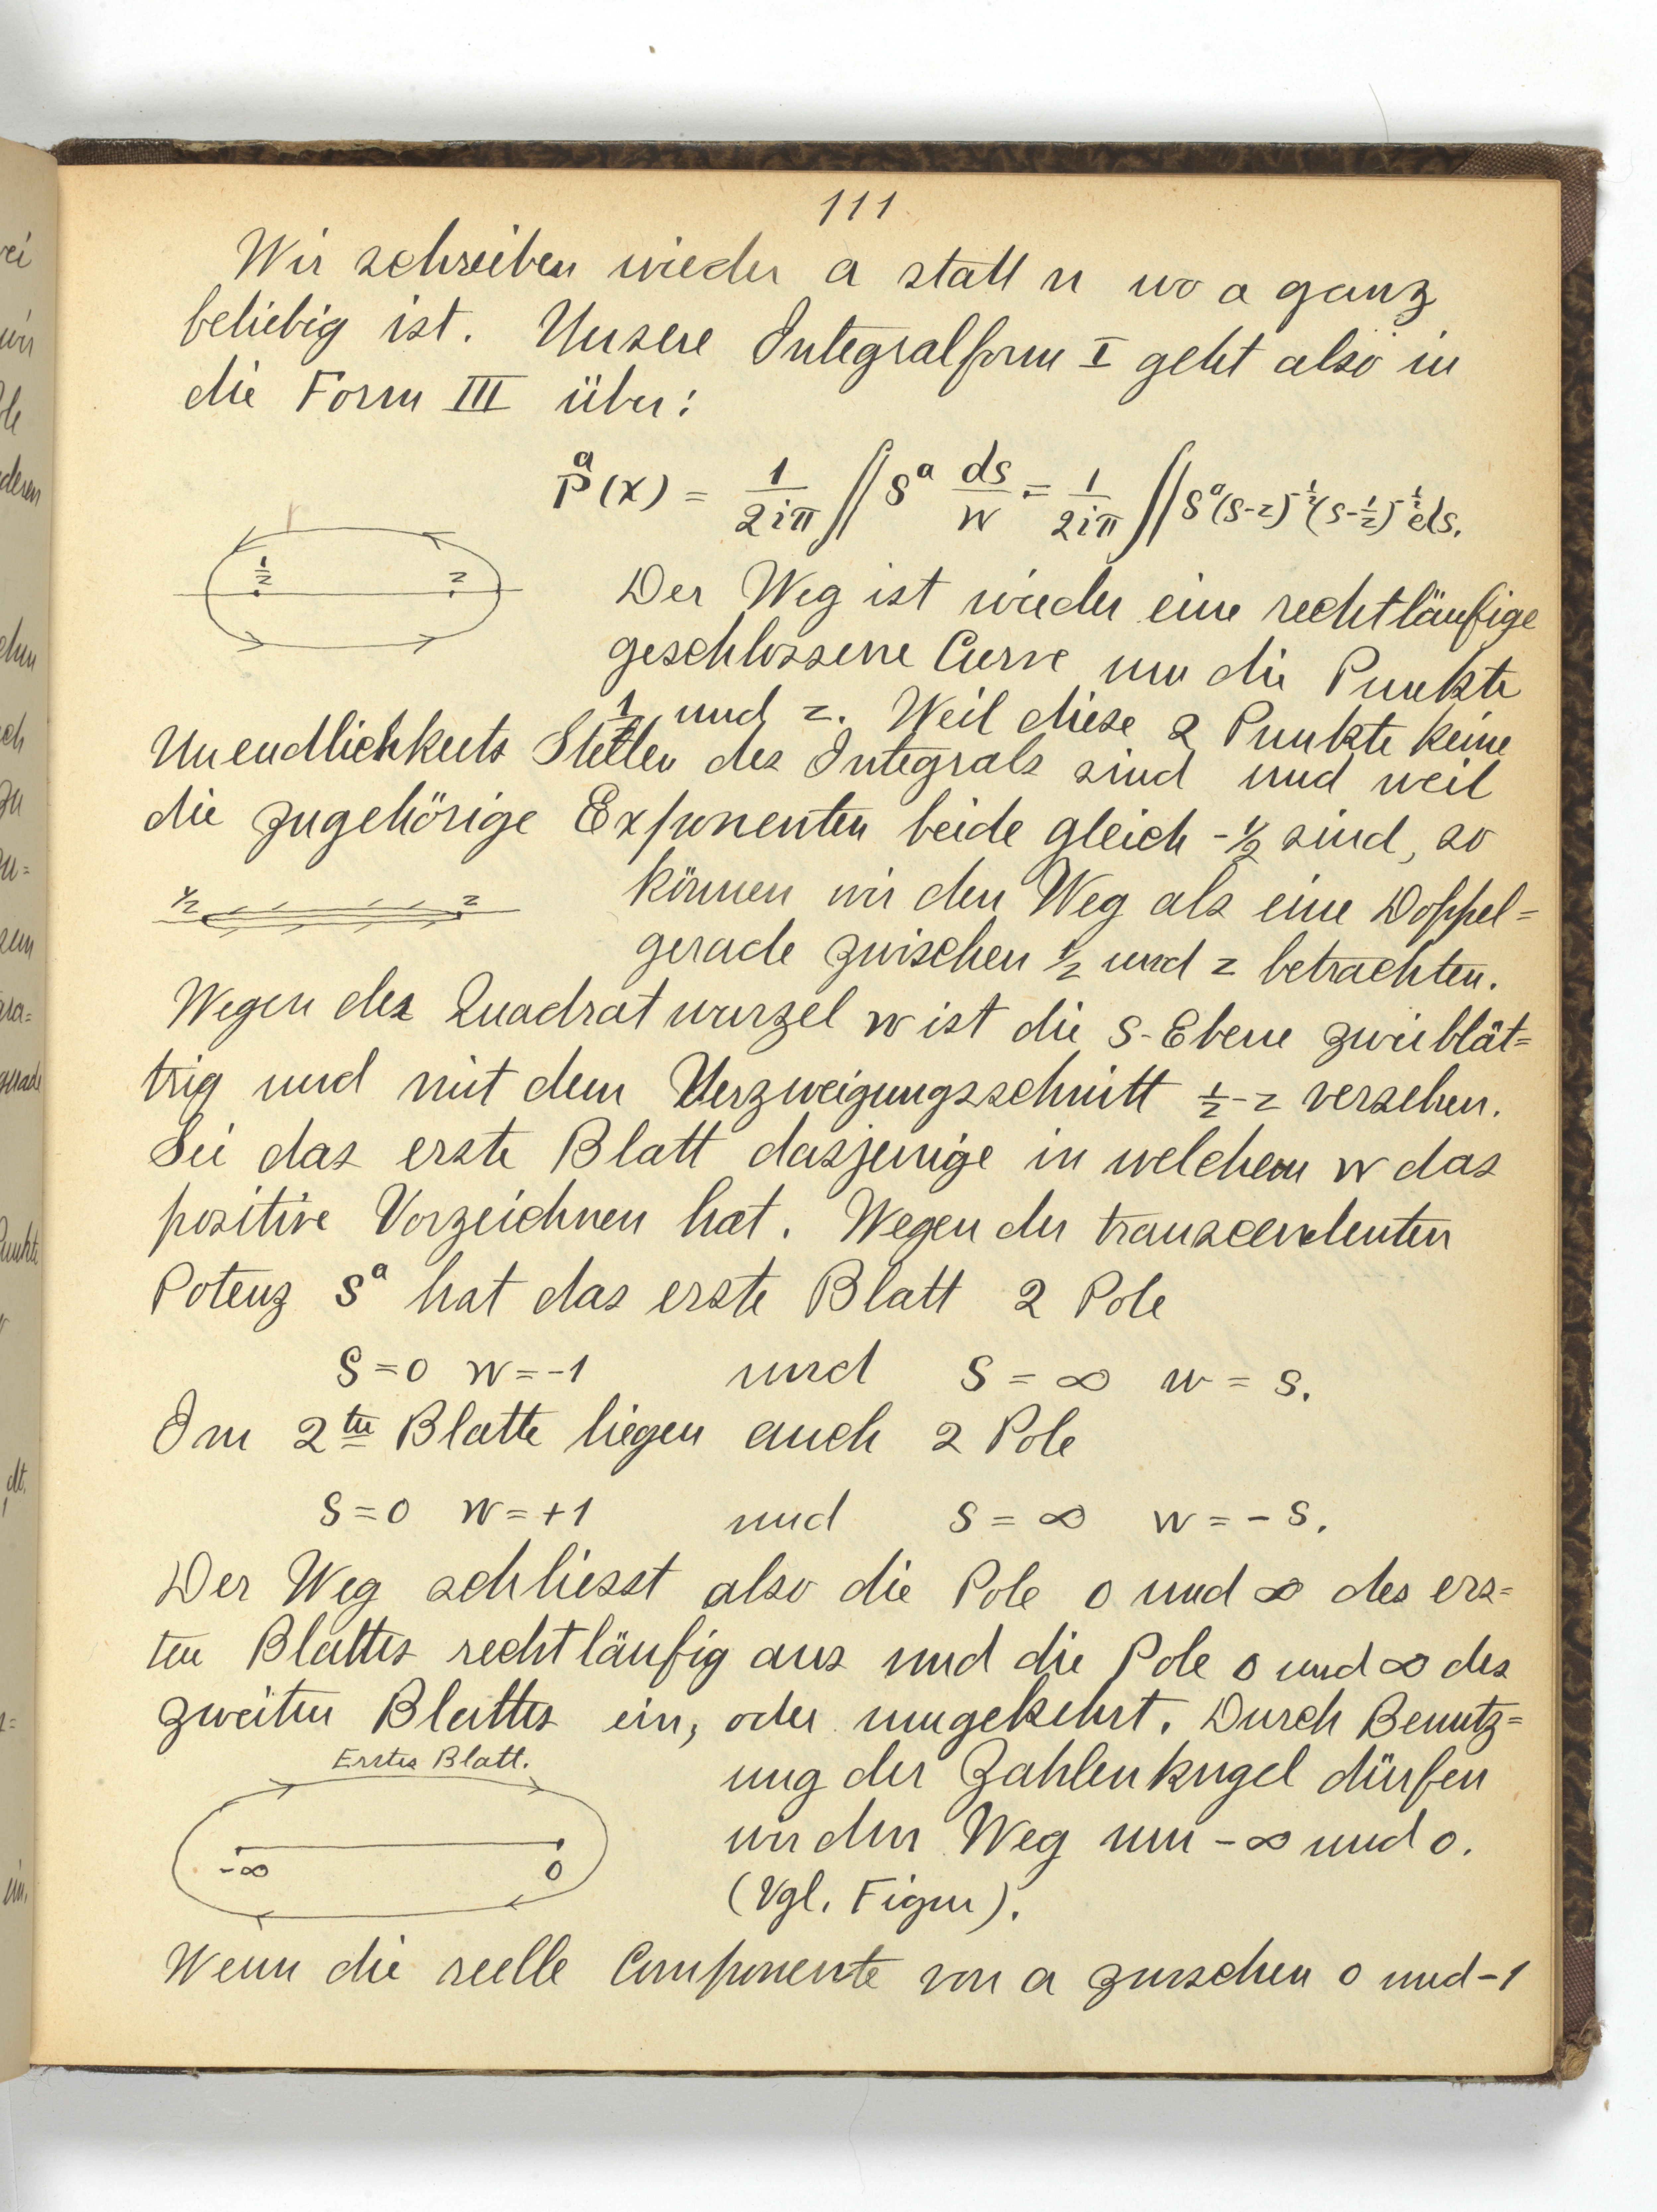 111
Wir schreiben wieder a statt n wo a ganz
beliebig ist. Unsere Integralform I geht also in
die Form III über:
P^a(x) = 1/2iπ ∫∫ s^a ds/w = 1/2iπ ∫∫ s^a (s-z)^-½ (s-1/z)^-½ ds.
1/z z
Der Weg ist wieder eine rechtläufige
geschlossene Curve um die Punkte
1/z und z. Weil diese 2 Punkte keine
Unendlichkeits Stellen des Integrals sind und weil
die zugehörige Exponenten beide gleich -½ sind, so
1/z z
können wir den Weg als eine Doppel=
gerade zwischen 1/z und z betrachten.
Wegen der Quadratwurzel w ist die s-Ebene zweiblät=
trig und mit dem Verzweigungsschnitt 1/z-z versehen.
Sei das erste Blatt dasjenige in welchem w das
positive Vorzeichnen hat. Wegen der transcendenten
Potenz s^a hat das erste Blatt 2 Pole
s=0 w=-1 und s=∞ w=s.
Im 2ten Blatte liegen auch 2 Pole
s=0 w=+1 und s=∞ w=-s.
Der Weg schliesst also die Pole 0 und ∞ des ers=
ten Blattes rechtläufig aus und die Pole 0 und ∞ des
zweiten Blattes ein, oder umgekehrt. Durch Benutz=
Erstes Blatt.
-∞ 0
ung der Zahlenkugel dürfen
wir den Weg um -∞ und 0.
(Vgl. Figur).
Wenn die reelle Componente von a zwischen 0 und -1